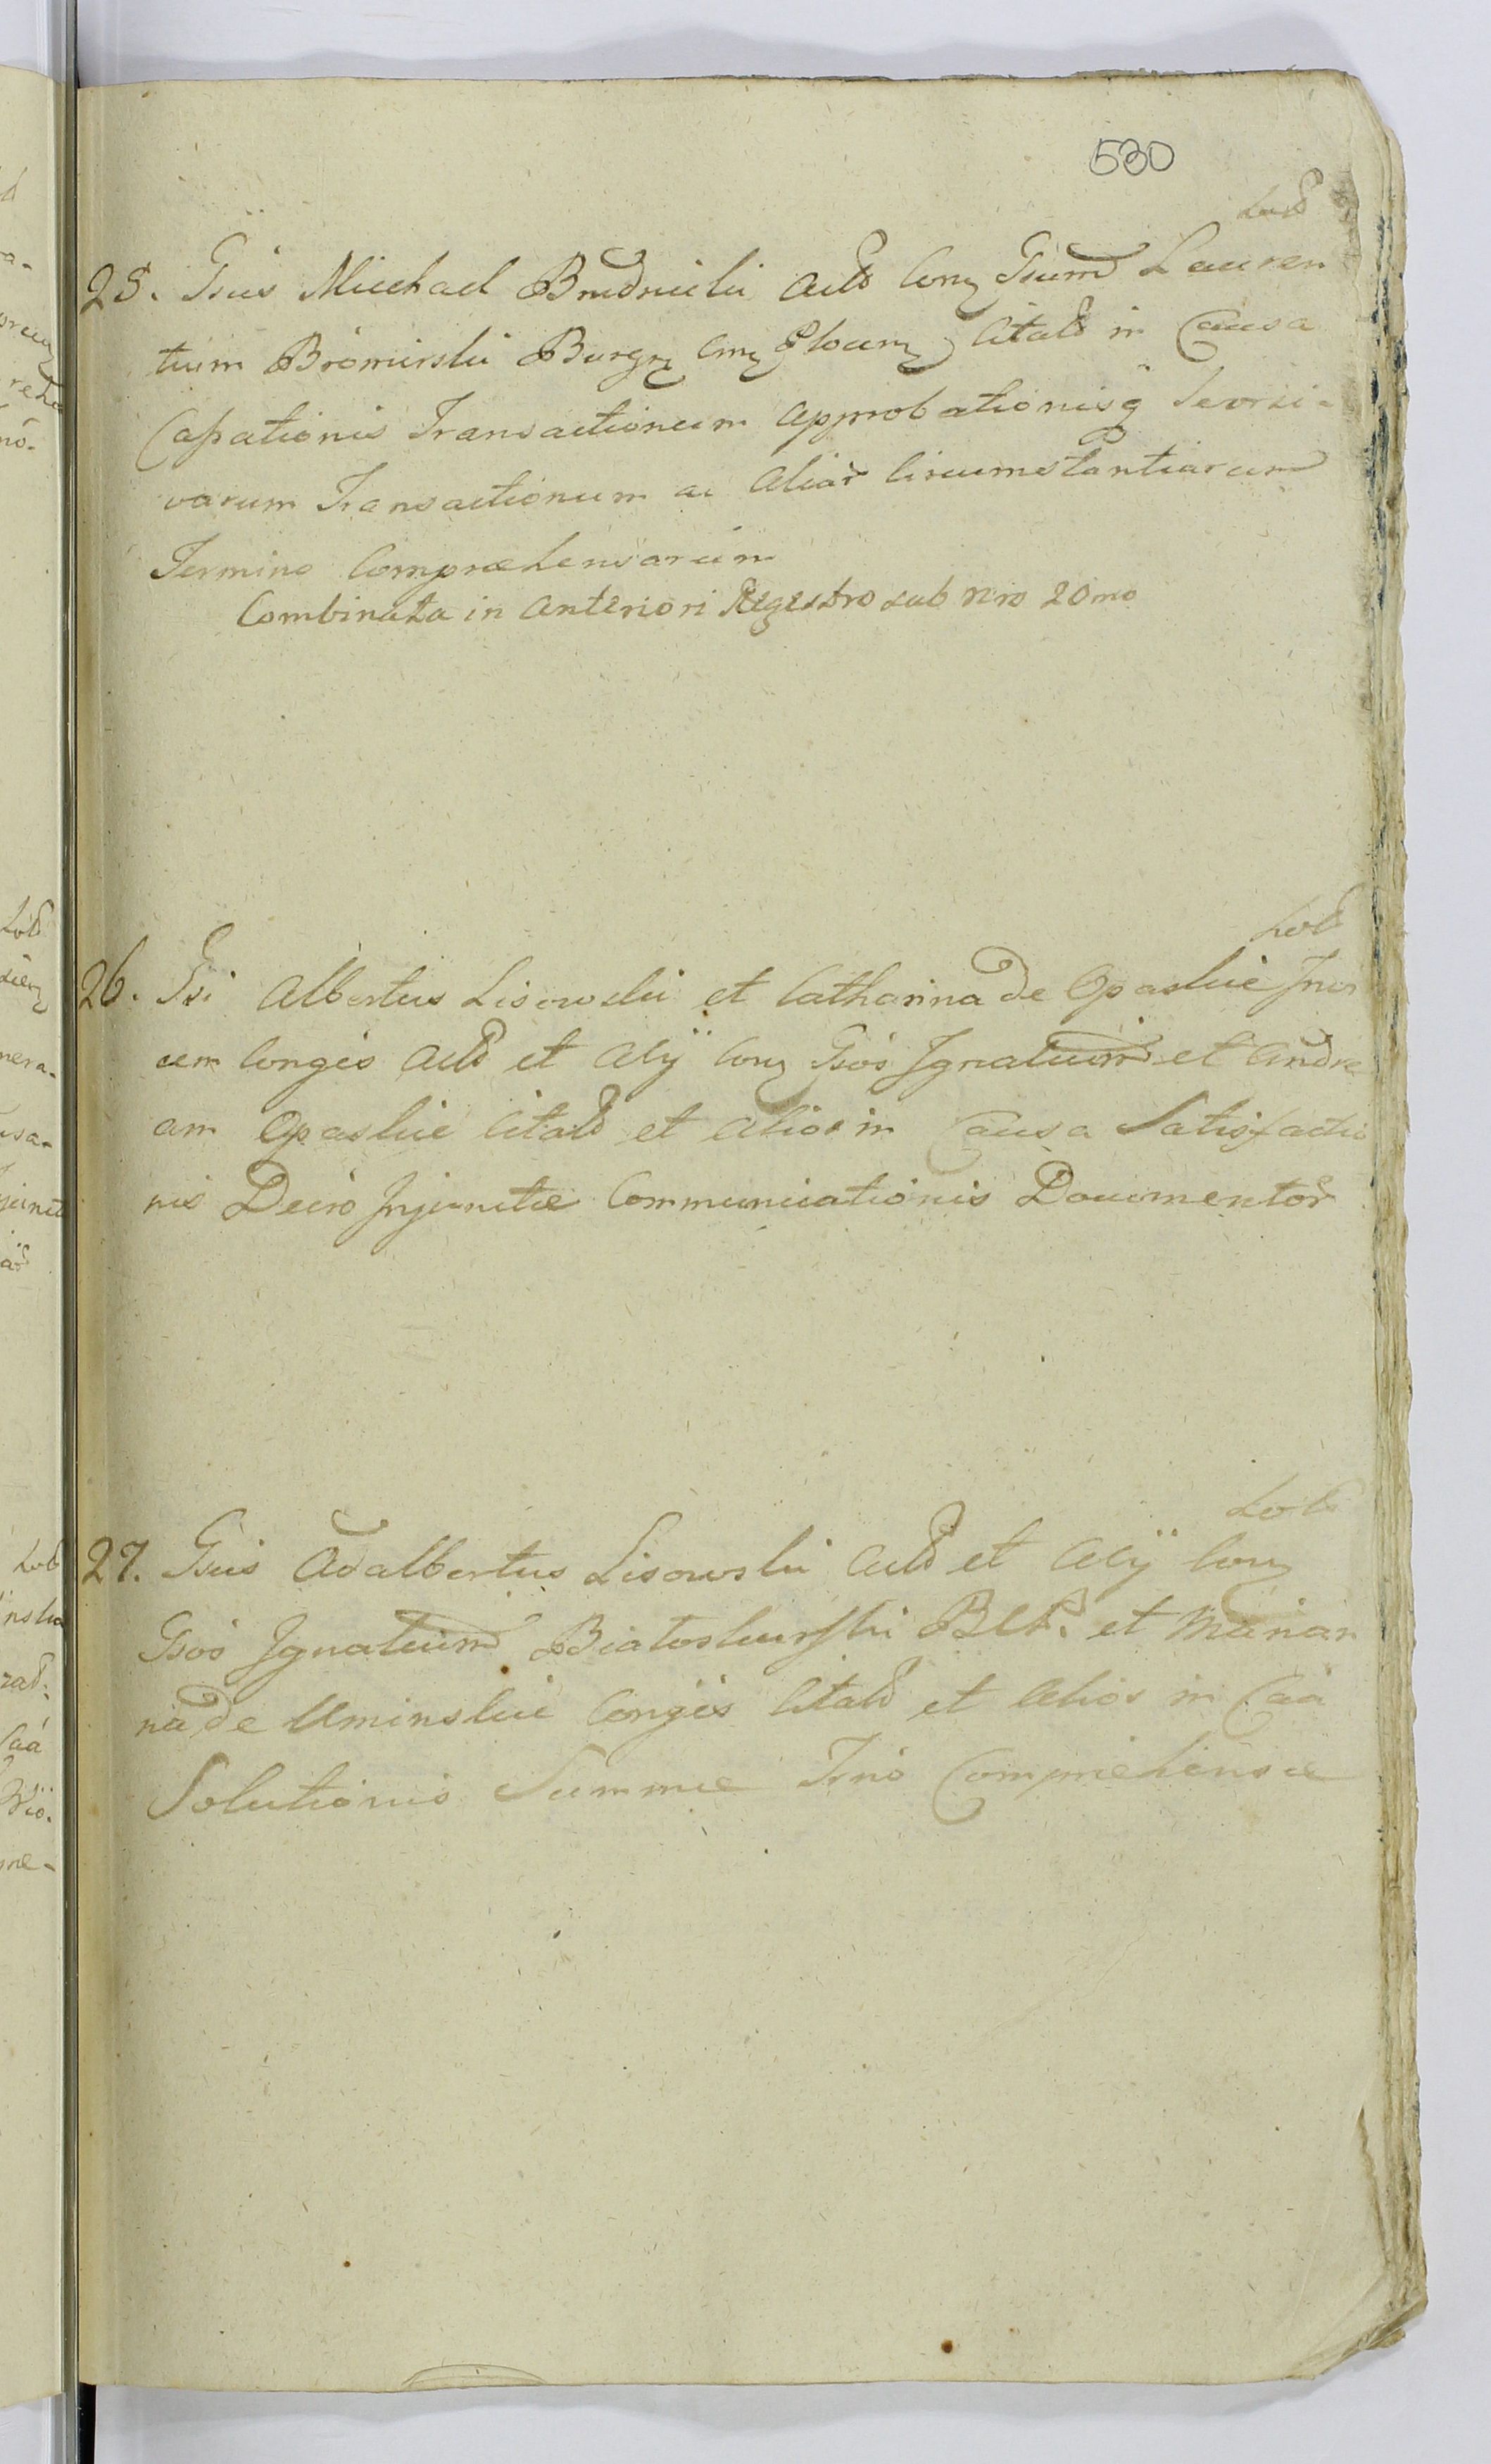 530
25. Gsus Michael Brudnicki Actd Cong Gsum Lauren
tium Bromirski Burgg Cmg Plocang Citatd in Causa
Cassationis Transactionum Approbationisq Seorsi-
varum Transactionum ac Aliar Circumstantiarum
Termino Compraehensarum
Combinata in Anteriori Regestro sub Nro 20mo
26. Gsi Albertus Lisowski et Catharina de Opaskie Invi
cem Conges Actd et Alÿ Cong Gsos Ignatium et Andre
am Opaskie Citatd et Alios in Causa Satisfactio
nis Decro Injunctae Communicationis Documentor
27. Gsus Adalbertus Lisowski Actd et Alÿ Cong
Gsos Ignatium Białoskurski BCP. et Marian
na de Uminskie Conges Citatd et Alios in Caa
Solutionis Summae Trno Compraehensae